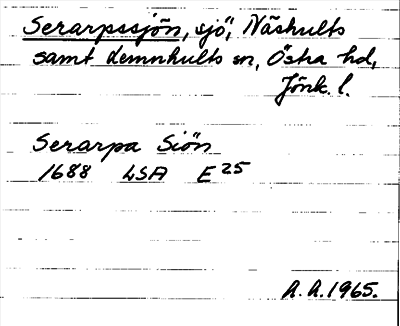 Serarpssjön, sjö, Näshults
samt Lemnhults sn, Östra hd,
Jönk. l.
Serarpa Siön
1688 LSA E 25
A. A. 1965.